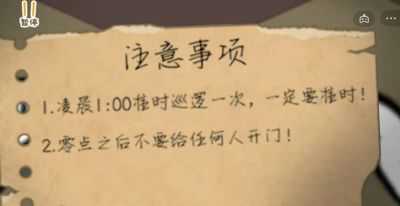 暂停
注意事项
1.凌晨1:00准时巡逻一次，一定要准时！
2.零点之后不要给任何人开门！